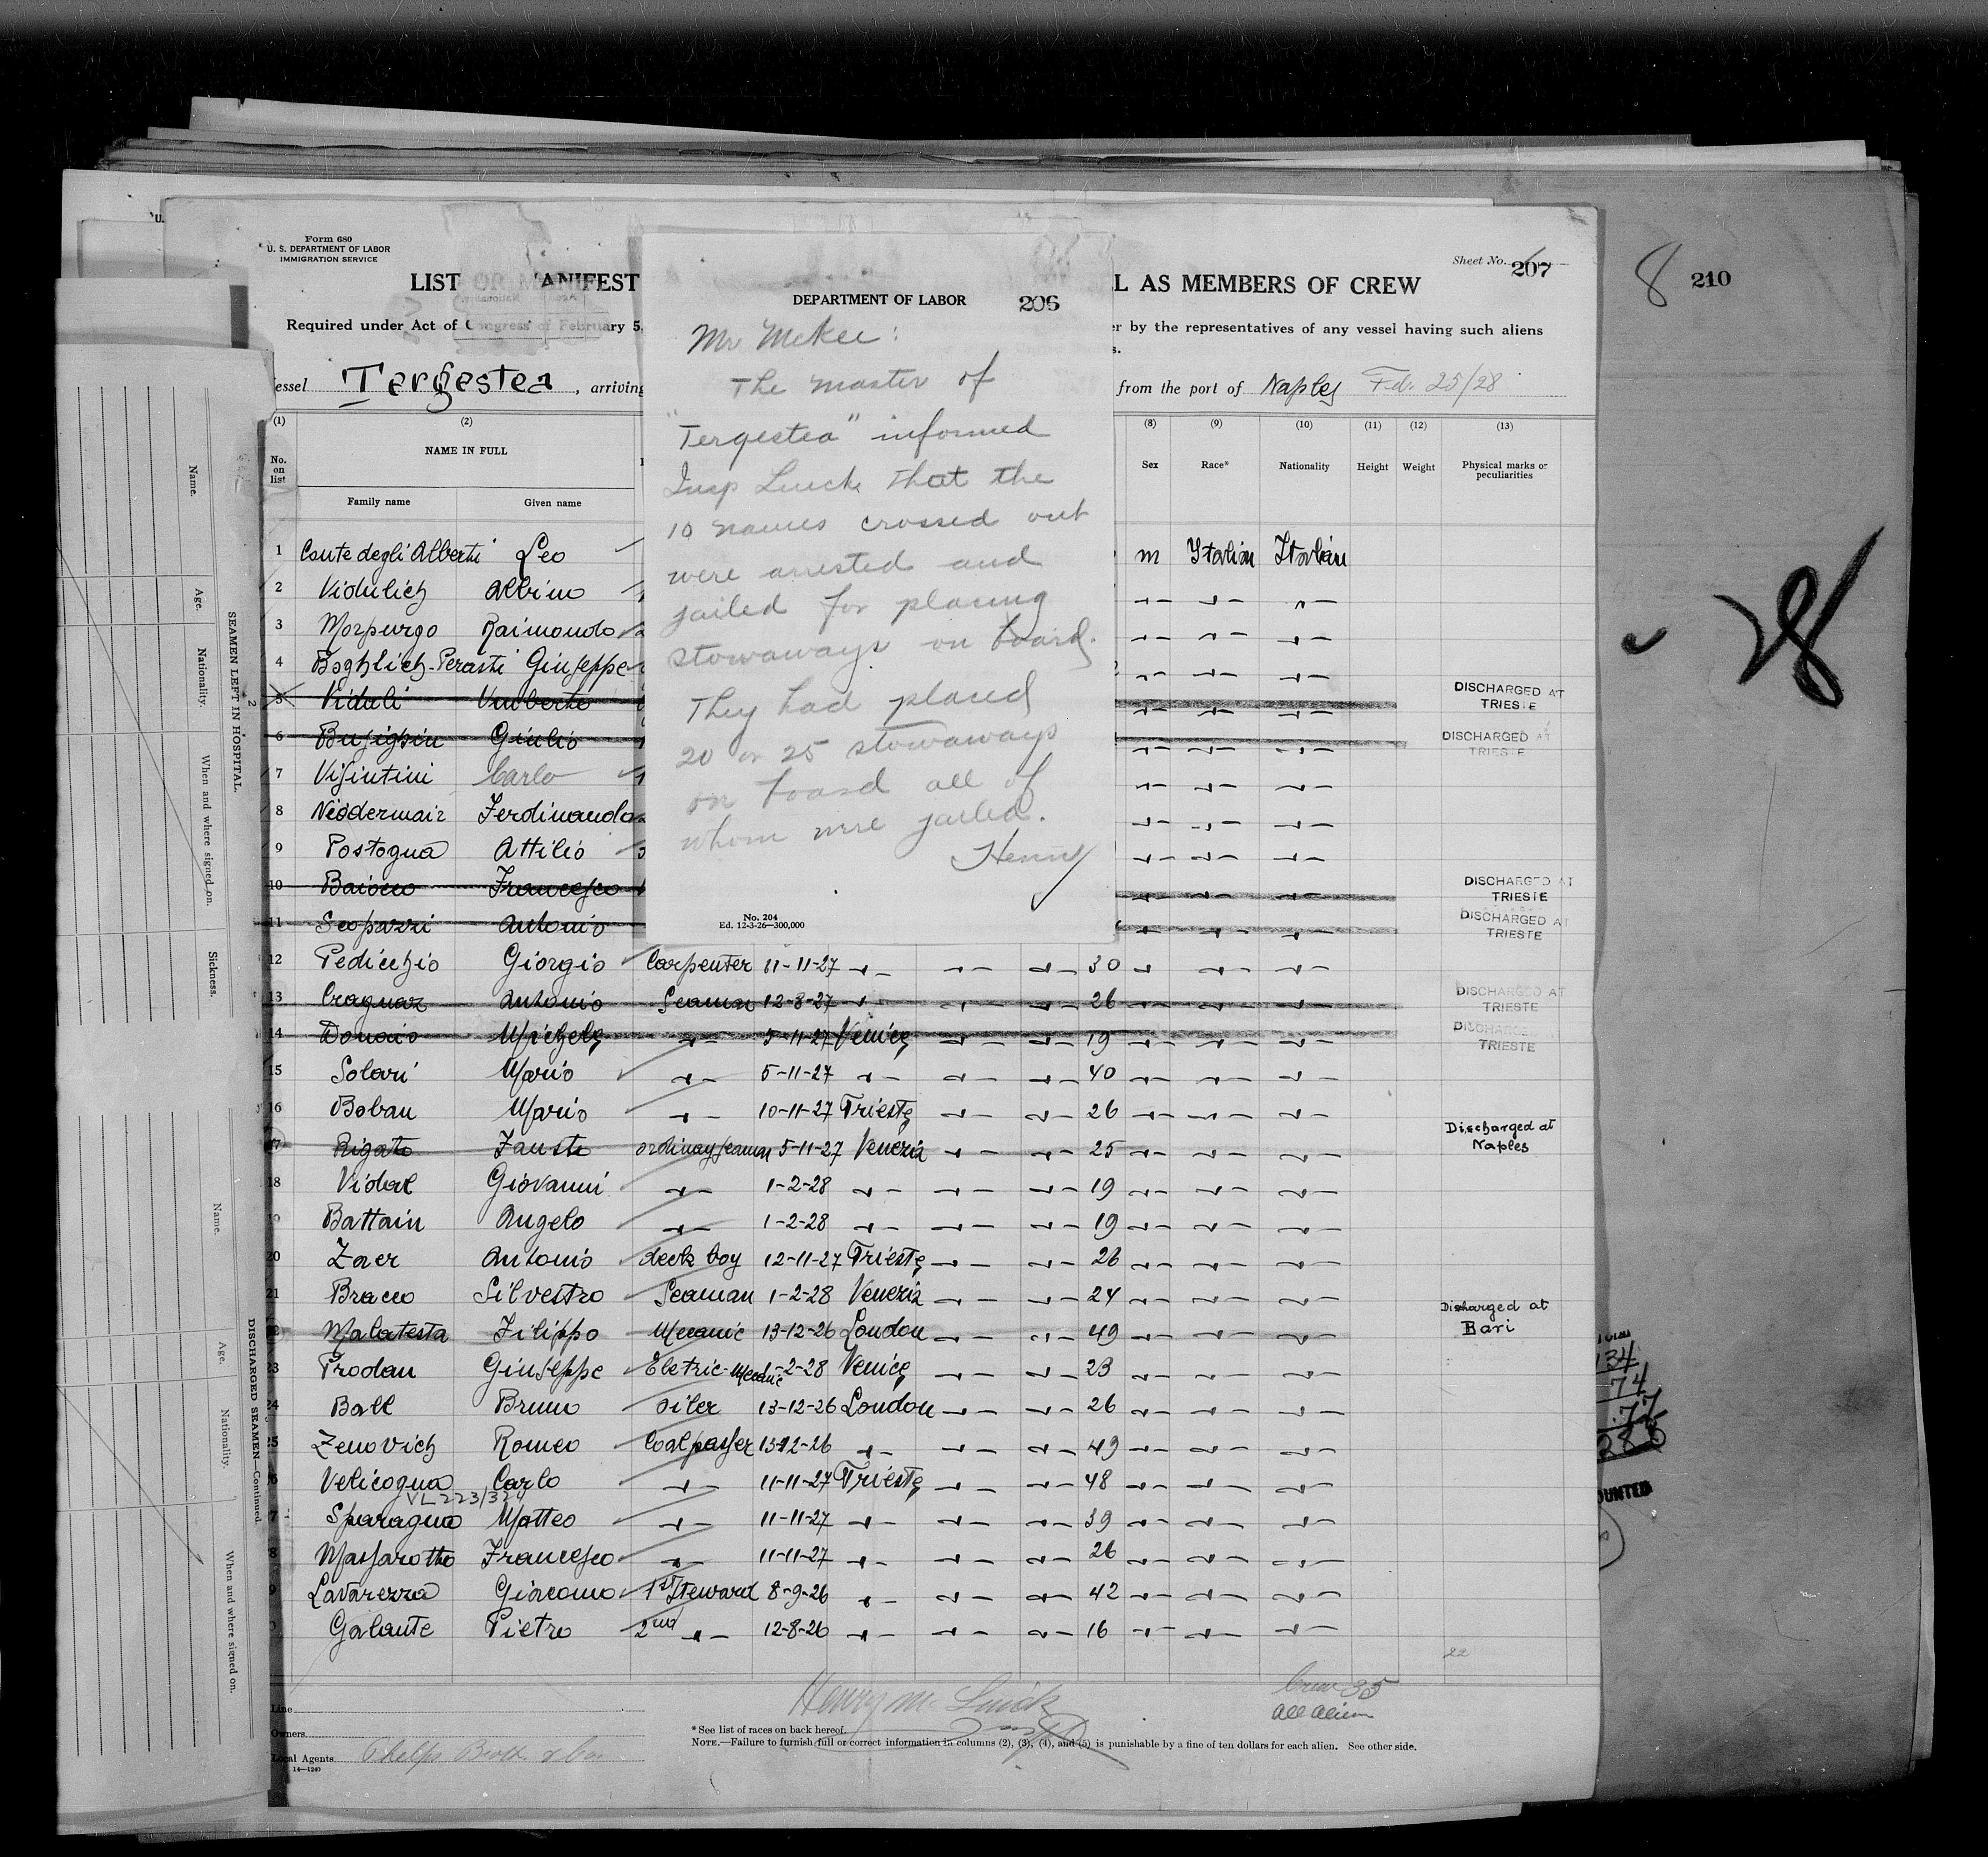 Form 680
U. S. DEPARTMENT OF LABOR
IMMIGRATION SERVICE
Sheet No. 207
8 210
LIST OR MANIFEST
L AS MEMBERS OF CREW
Required under Act of Congress of February 5,
by the representatives of any vessel having such aliens
essel Tergestea, arriving
from the port of Naples Feb. 25/28
DEPARTMENT OF LABOR 206
Mr McKee:
The master of
"Tergestea" informed
Insp Luick that the
10 names crossed out
were arrested and
jailed for placing
stowaways on board.
They had placed
20 or 25 stowaways
on board all of
whom were jailed.
Henry
No. 204
Ed. 12-3-26—300,000
(1) (2) (8) (9) (10) (11) (12) (13)
No. on list
NAME IN FULL
Family name Given name
Sex Race* Nationality Height Weight Physical marks or peculiarities
1 Conte degli Alberti Leo m Italian Italian
2 Vidulich Albino
3 Morpurgo Raimondo
4 Boghlich-Perasti Giuseppe
5 Viduli Umberto DISCHARGED AT TRIESTE
6 Giulio DISCHARGED AT TRIESTE
7 Visintini Carlo
8 Neodermair Ferdinando
9 Postogna Attilio
10 Baiocco Francesco DISCHARGED AT TRIESTE
11 Scopazzi Antonio DISCHARGED AT TRIESTE
12 Pedicchio Giorgio Carpenter 11-11-27 30
13 Cragnaz Antonio Seaman 12-8-27 26 DISCHARGED AT TRIESTE
14 Donaio Michele 5-11-27 Venice 19 DISCHARGED TRIESTE
15 Solari Mario 5-11-27 40
16 Boban Mario 10-11-27 Trieste 26
17 Rigato Fausto ordinay seaman 5-11-27 Venezia 25 Discharged at Naples
18 Vidal Giovanni 1-2-28 19
19 Battain Angelo 1-2-28 19
20 Zaer Antonio deck boy 12-11-27 Trieste 26
21 Bracco Silvestro Seaman 1-2-28 Venezia 24
22 Malatesta Filippo Mecanic 13-12-26 London 49 Discharged at Bari
23 Prodan Giuseppe Eletric-Mecanic -2-28 Venice 23
24 Ball Bruno oiler 13-12-26 London 26
25 Zenovich Romeo Coalpasser 13-12-26 49
6 Velicogna Carlo 11-11-27 Trieste 48
VL 223/324
7 Sparagna Matteo 11-11-27 39
8 Massarotto Francesco 11-11-27 26
9 Lavarezza Giacomo 1st Steward 8-9-26 42
Galante Pietro 2nd 12-8-26 16
22
Henry M. Luick
Crew 35
All alien
Line
Owners
Local Agents Phelps Bros. & Co.
14—1240
*See list of races on back hereof.
NOTE.—Failure to furnish full or correct information in columns (2), (3), (4), and (5) is punishable by a fine of ten dollars for each alien. See other side.
Name.
Age.
Nationality.
When and where signed on.
Sickness.
SEAMEN LEFT IN HOSPITAL.
2
Name.
Age.
Nationality.
When and where signed on.
DISCHARGED SEAMEN—Continued.
28
134
74
77
285
OUNTED